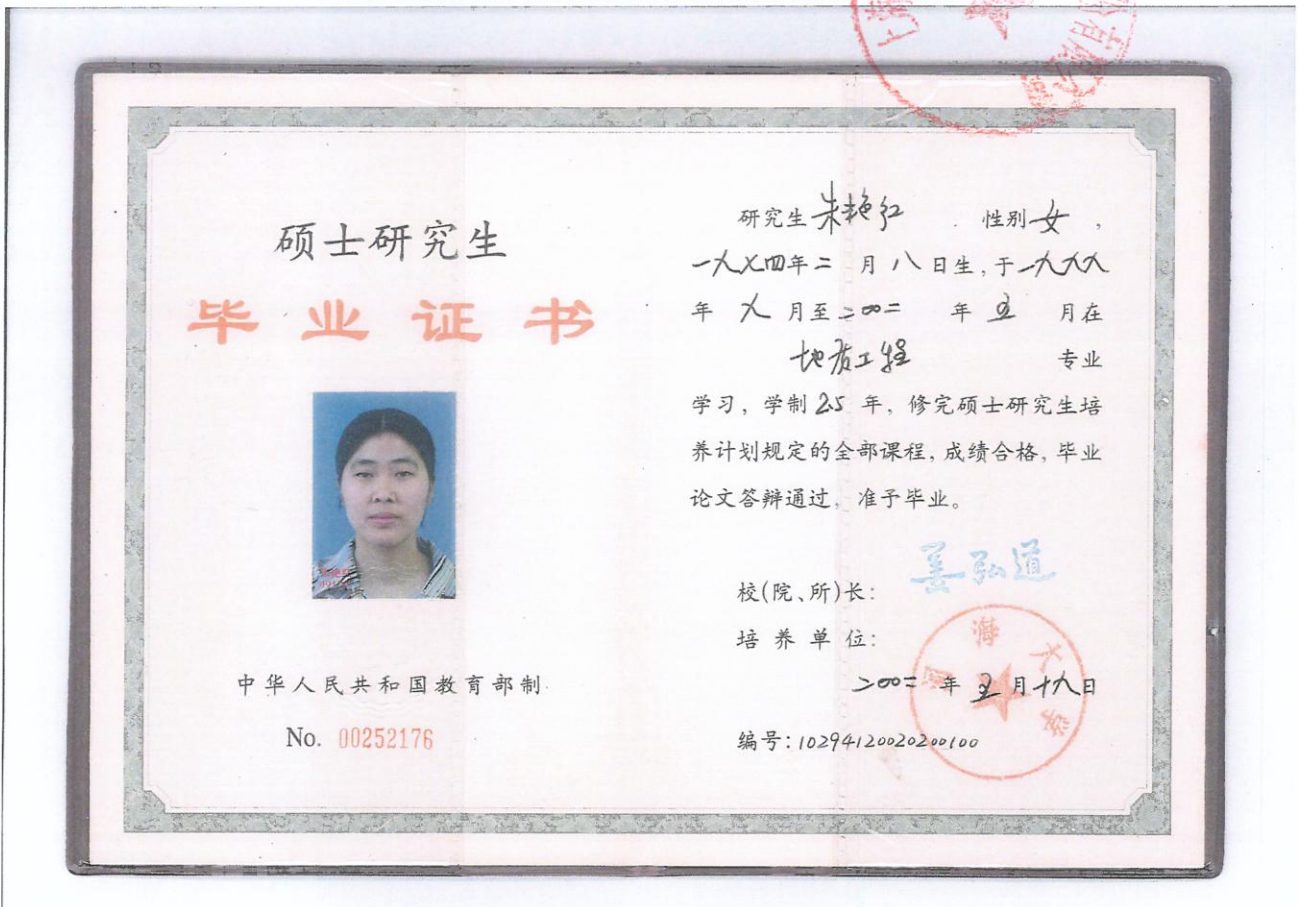 硕士研究生
毕业证书
中华人民共和国教育部制
No. 00252176
研究生 朱艳红 性别 女，
一九七四年二月八日生，于一九九九
年九月至二〇〇二年五月在
地质工程 专业
学习，学制 2.5 年，修完硕士研究生培
养计划规定的全部课程，成绩合格，毕业
论文答辩通过，准予毕业。
姜弘道
校(院、所)长：
培养单位：
河海大学
二〇〇二年五月十九日
编号：102941200202001​00
上海